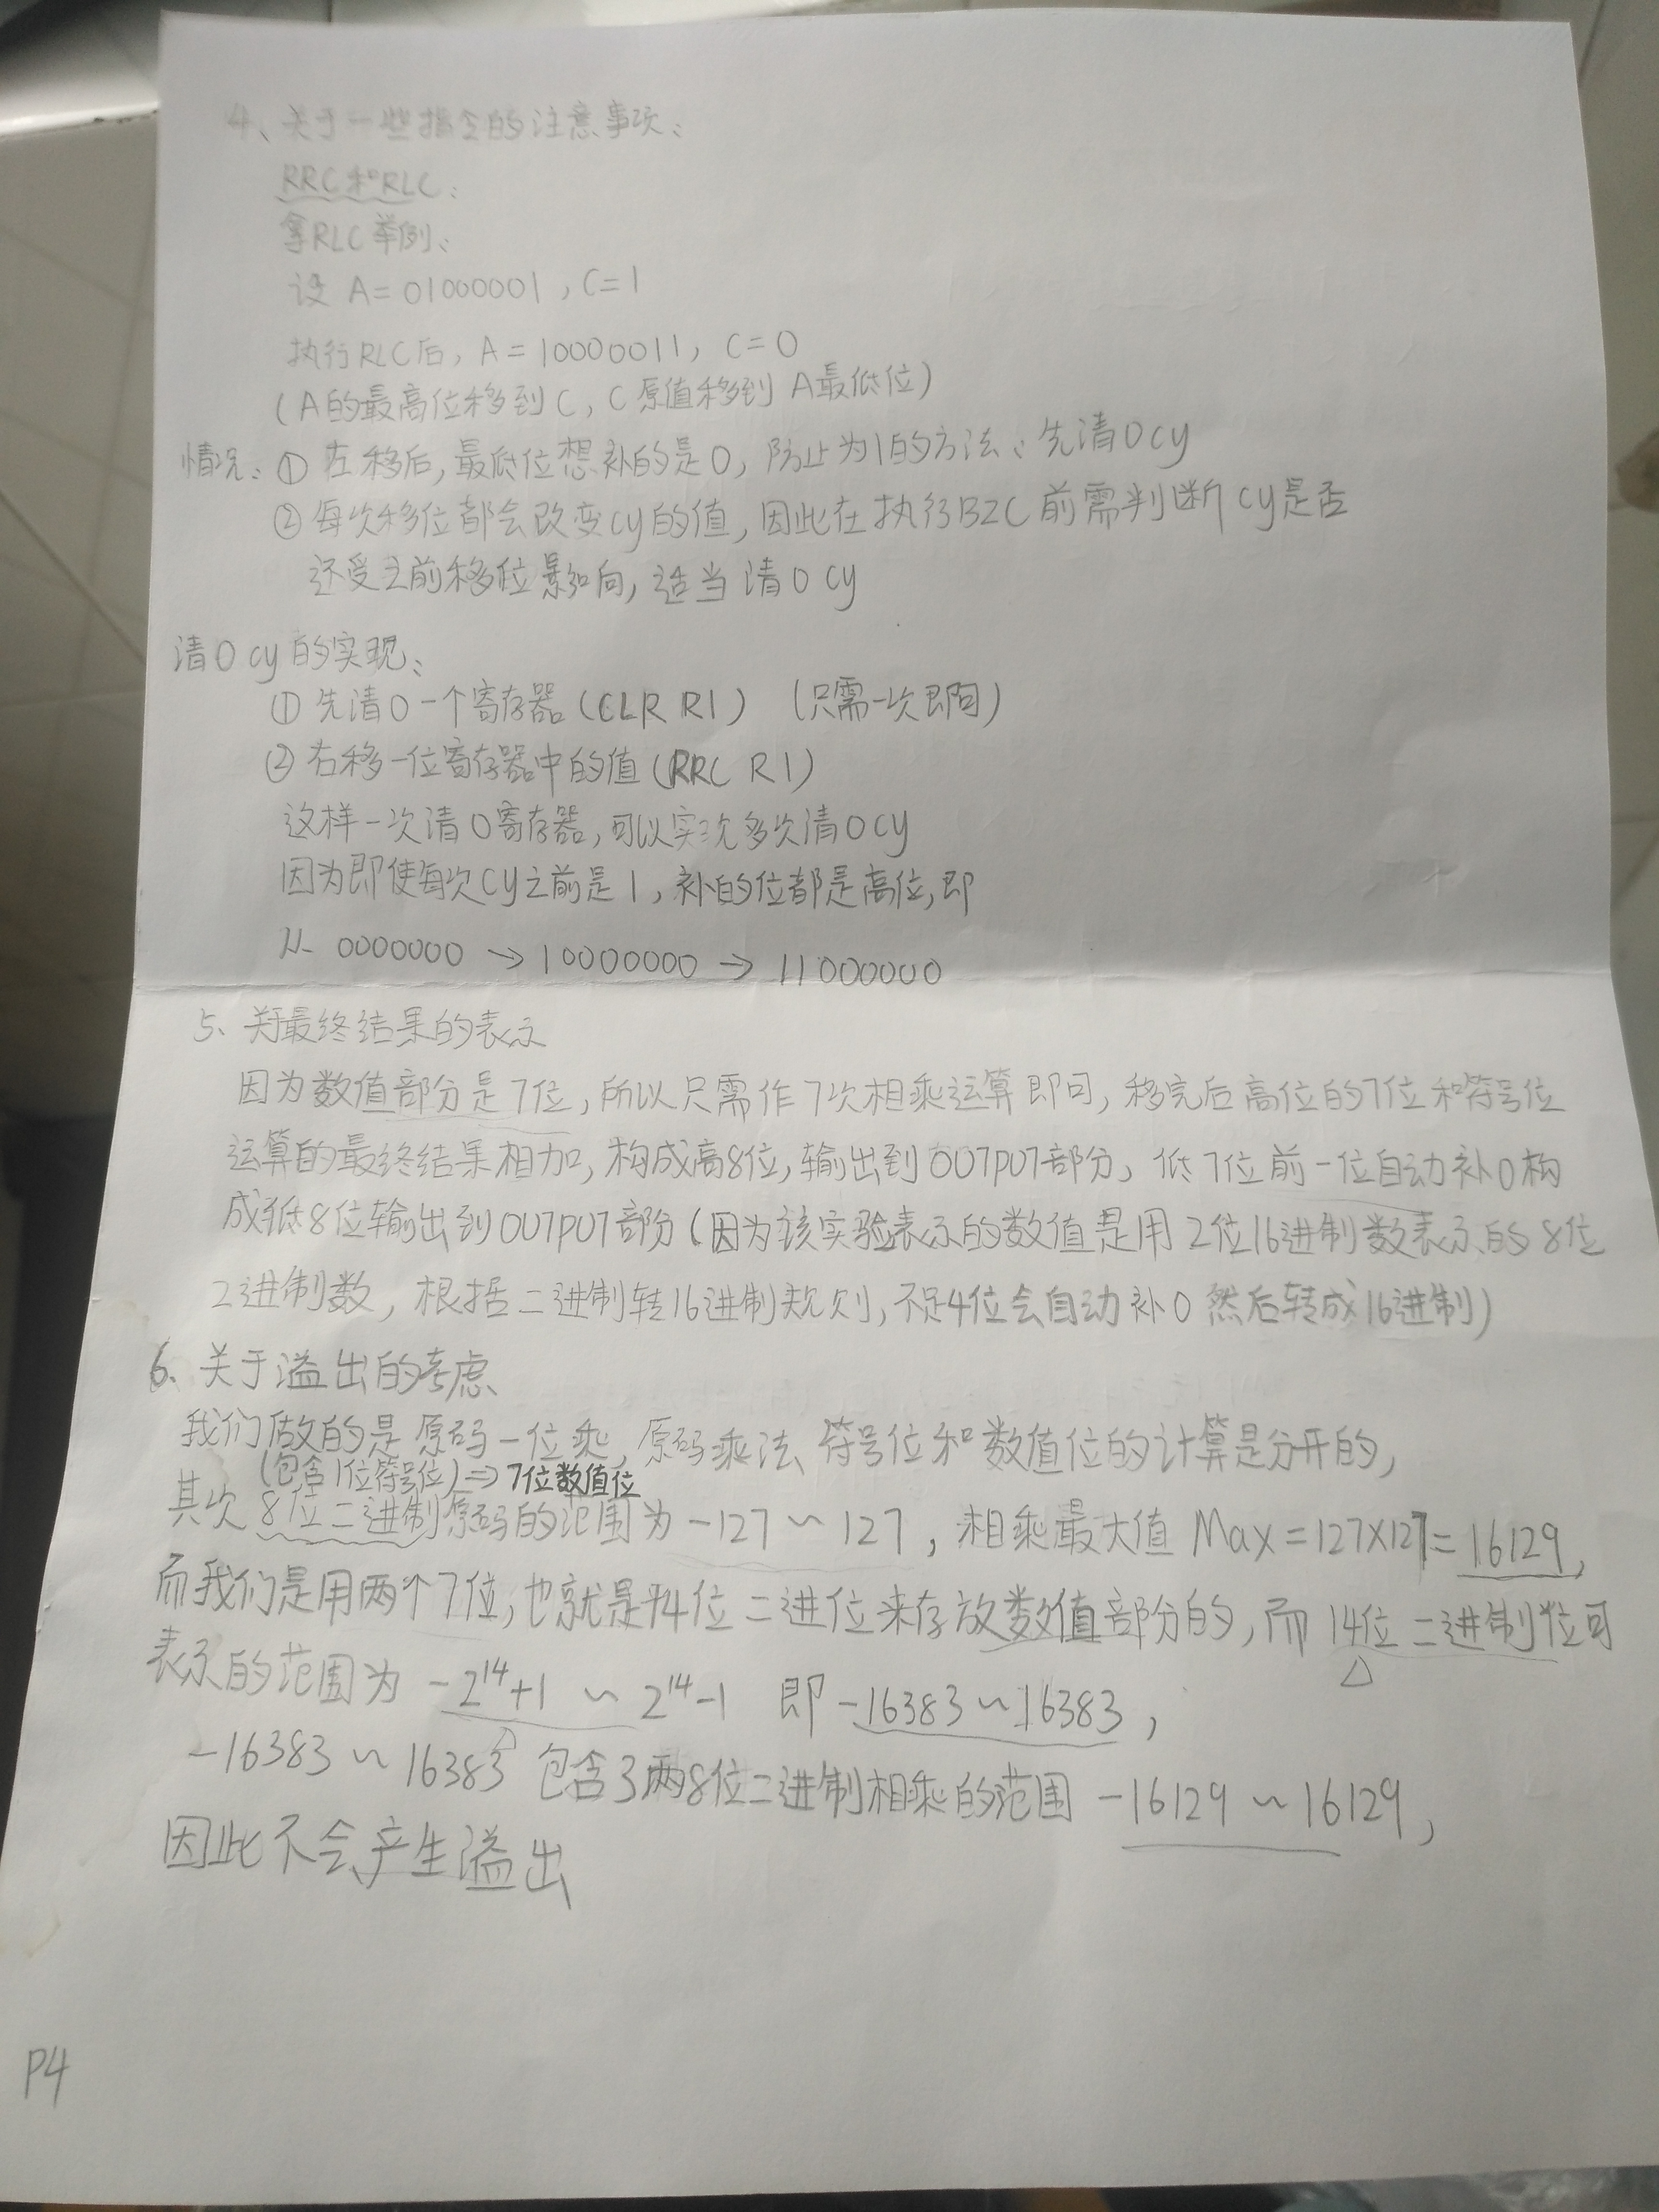 4、关于一些指令的注意事项:
RRC和RLC:
拿RLC举例:
设 A=01000001,C=1
执行RLC后,A=10000011,C=0
(A的最高位移到C,C原值移到A最低位)
情况:①左移后,最低位想补的是0,防止为1的方法:先清0cy
②每次移位都会改变cy的值,因此在执行BZC前需判断cy是否
还受之前移位影响,适当清0 cy
清0 cy的实现:
①先清0一个寄存器(CLR R1) (只需一次即可)
②右移一位寄存器中的值(RRC R1)
这样一次清0寄存器,可以实现多次清0cy
因为即使每次cy之前是1,补的位都是高位,即
从 0000000 → 10000000 → 11000000
5、关于最终结果的表示
因为数值部分是7位,所以只需作7次相乘运算即可,移完后高位的7位和符号位
运算的最终结果相加,构成高8位,输出到OUTPUT部分,低7位前一位自动补0构
成低8位输出到OUTPUT部分(因为该实验表示的数值是用2位16进制数表示的8位
2进制数,根据二进制转16进制规则,不足4位会自动补0然后转成16进制)
6、关于溢出的考虑
我们做的是原码一位乘,原码乘法、符号位和数值位的计算是分开的,
(包含1位符号位)⇒7位数值位
其次8位二进制原码的范围为-127~127,相乘最大值 Max=127×127=16129,
而我们是用两个7位,也就是14位二进位来存放数值部分的,而14位二进制位可
表示的范围为 -2¹⁴+1 ~ 2¹⁴-1 即 -16383~16383,
-16383~16383 包含了两8位二进制相乘的范围 -16129~16129,
因此不会产生溢出
P4